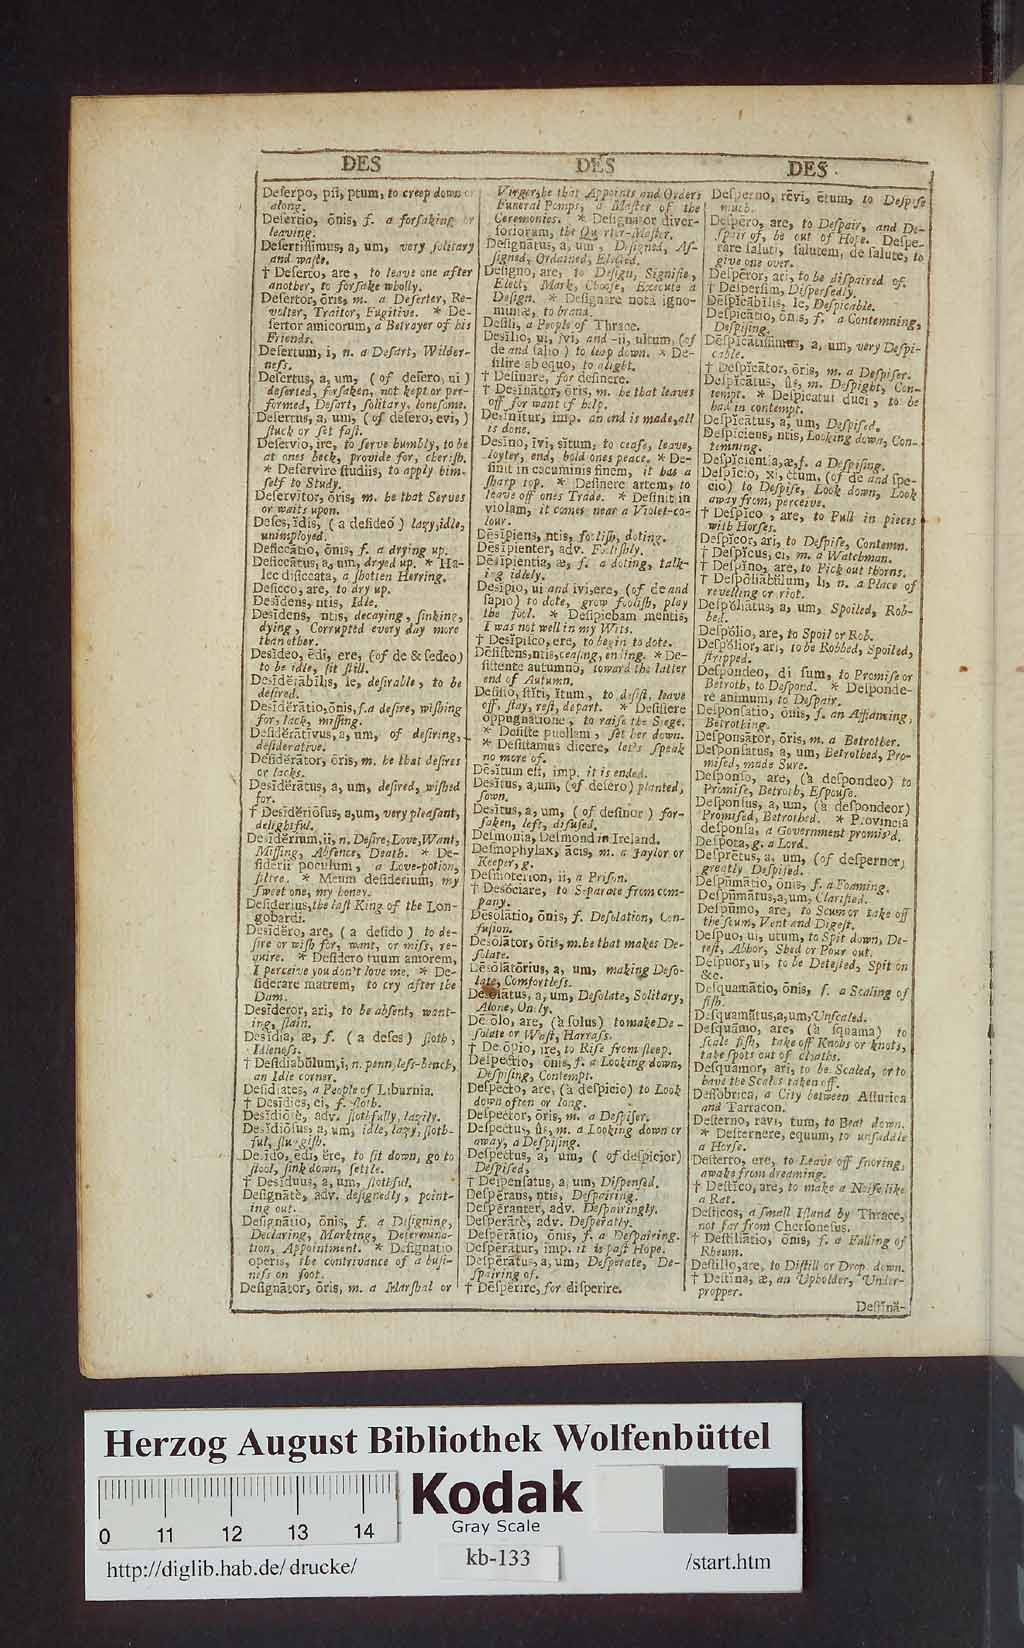 DES
Deſerpo, pſi, ptum, to creep down or
along.
Deſertio, ōnis, f. a forſaking or
leaving.
Deſertiſſimus, a, um, very ſolitary
and waſte.
† Deſerto, are, to leave one after
another, to forſake wholly.
Deſertor, ōris, m. a Deſerter, Re-
volter, Traitor, Fugitive. * De-
ſertor amicorum, a Betrayer of his
Friends.
Deſertum, i, n. a Deſart, Wilder-
neſs.
Deſertus, a, um, (of deſero, ui)
deſerted, forſaken, not kept or per-
formed, Deſart, ſolitary, loneſome.
Deſertus, a, um, (of deſero, evi,)
ſtuck or ſet faſt.
Deſervio, ire, to ſerve humbly, to be
at ones beck, provide for, cheriſh.
* Deſervire ſtudiis, to apply him-
ſelf to Study.
Deſervĭtor, ōris, m. he that Serves
or waits upon.
Deſes, ĭdis, (a deſideo) lazy, idle,
unimployed.
Deſiccātio, ōnis, f. a drying up.
Deſiccātus, a, um, dryed up. * Ha-
lec deſiccata, a ſhotten Herring.
Deſicco, are, to dry up.
Desĭdens, ntis, Idle.
Desīdens, ntis, decaying, ſinking,
dying, Corrupted every day more
than other.
Desĭdeo, ēdi, ere, (of de & ſedeo)
to be idle, ſit ſtill.
Desīdĕrābĭlis, le, deſirable, to be
deſired.
Desīdĕrātio, ōnis, f. a deſire, wiſhing
for, lack, miſſing.
Deſidĕrātīvus, a, um, of deſiring,
deſiderative.
Deſidĕrātor, ōris, m. he that deſires
or lacks.
Desīdĕrātus, a, um, deſired, wiſhed
for.
† Desīdĕriōſus, a, um, very pleaſant,
delightful.
Desīdĕrium, ii, n. Deſire, Love, Want,
Miſſing, Abſence, Death. * De-
ſiderii poculum, a Love-potion,
filtre. * Meum deſiderium, my
ſweet one, my honey.
Deſiderius, the laſt King of the Lon-
gobardi.
Desīdĕro, are, (a deſido) to de-
ſire or wiſh for, want, or miſs, re-
quire. * Deſidero tuum amorem,
I perceive you don't love me. * De-
ſiderare matrem, to cry after the
Dam.
Desīderor, ari, to be abſent, want-
ing, ſlain.
Desĭdia, æ, f. (a deſes) ſloth,
Idleneſs.
† Deſidiabŭlum, i, n. penny leſs-bench,
an Idle corner.
Deſidiates, a People of Liburnia.
† Desĭdies, ei, f. ſloth.
Desĭdiōsē, adv. ſlothfully, lazily.
Desĭdiōſus, a, um, idle, lazy, ſloth-
ful, ſluggiſh.
Desīdo, ēdi, ĕre, to ſit down, go to
ſtool, ſink down, ſettle.
† Desĭduus, a, um, ſlothful.
Deſignātè, adv. deſignedly, point-
ing out.
Deſignātio, ōnis, f. a Deſigning,
Declaring, Marking, Determina-
tion, Appointment. * Deſignatio
operis, the contrivance of a buſi-
neſs on foot.
Deſignātor, ōris, m. a Marſhal or
DES
Virger, he that Appoints and Orders
Funeral Pomps, a Maſter of the
Ceremonies. * Deſignator diver-
ſoriorum, the Quarter-Maſter.
Deſignātus, a, um, Deſigned, Aſ-
ſigned, Ordained, Elected.
Deſigno, are, to Deſign, Signifie,
Elect, Mark, Chooſe, Execute a
Deſign. * Deſignare notâ igno-
miniæ, to brand.
Deſili, a People of Thrace.
Desĭlio, ui, ivi, and -ii, ultum, (of
de and ſalio) to leap down. * De-
ſilire ab equo, to alight.
† Deſinare, for deſinere.
† Desinātor, ōris, m. he that leaves
off for want of help.
Desĭnĭtur, imp. an end is made, all
is done.
Desĭno, īvi, sĭtum, to ceaſe, leave,
loyter, end, hold ones peace. * De-
ſinit in cacuminis finem, it has a
ſharp top. * Deſinere artem, to
leave off ones Trade. * Deſinit in
violam, it comes near a Violet-co-
lour.
Dēsĭpiens, ntis, fooliſh, doting.
Dēsĭpienter, adv. Fooliſhly.
Dēsĭpientia, æ, f. a doting, talk-
ing idlely.
Desĭpio, ui and ivi, ere, (of de and
ſapio) to dote, grow fooliſh, play
the fool. * Deſipiebam mentis,
I was not well in my Wits.
† Desĭpiſco, ere, to begin to dote.
Dēſiſtens, ntis, ceaſing, ending. * De-
ſiſtente autumno, toward the latter
end of Autumn.
Deſiſto, ſtĭti, ĭtum, to deſiſt, leave
off, ſtay, reſt, depart. * Deſiſtere
oppugnatione, to raiſe the Siege.
* Deſiſte puellam, ſet her down.
* Deſiſtamus dicere, let's ſpeak
no more of.
Desĭtum eſt, imp. it is ended.
Desĭtus, a, um, (of deſero) planted,
ſown.
Desĭtus, a, um, (of deſinor) for-
ſaken, left, diſuſed.
Deſmonia, Deſmond in Ireland.
Deſmophylax, ācis, m. a Jaylor or
Keeper, g.
Deſmoterion, ii, a Priſon.
† Desŏciare, to Separate from com-
pany.
Dēsōlātio, ōnis, f. Deſolation, Con-
fuſion.
Dēsōlātor, ōris, m. he that makes De-
ſolate.
Dēsōlātōrius, a, um, making Deſo-
late, Comfortleſs.
Dēsōlātus, a, um, Deſolate, Solitary,
Alone, Only.
Dēsōlo, are, (à ſolus) to make De-
ſolate or Waſt, Harraſs.
† Desōpio, ire, to Riſe from ſleep.
Deſpectio, ōnis, f. a Looking down,
Deſpiſing, Contempt.
Deſpecto, are, (à deſpicio) to Look
down often or long.
Deſpector, ōris, m. a Deſpiſer.
Deſpectus, ûs, m. a Looking down or
away, a Deſpiſing.
Deſpectus, a, um, (of deſpicior)
Deſpiſed,
† Deſpenſatus, a, um, Diſpenſed.
Deſpērans, ntis, Deſpairing.
Deſpēranter, adv. Deſpairingly.
Deſperātè, adv. Deſperatly.
Deſpērātio, ōnis, f. a Deſpairing.
Deſpērātur, imp. it is paſt Hope.
Deſpērātus, a, um, Deſperate, De-
ſpairing of.
† Dēſpĕrire, for diſperire.
DES
Deſperno, rēvi, ētum, to Deſpiſe
much.
Deſpēro, are, to Deſpair, and De-
ſpair of, be out of Hope. Deſpe-
rare ſaluti, ſalutem, de ſalute, to
give one over.
Deſpēror, ari, to be deſpaired of.
† Deſperſim, Diſperſedly.
Dēſpĭcābĭlis, le, Deſpicable.
Deſpĭcātio, ōnis, f. a Contemning,
Deſpiſing.
Dēſpĭcātiſſimus, a, um, very Deſpi-
cable.
† Deſpĭcātor, ōris, m. a Deſpiſer.
Deſpĭcātus, ûs, m. Deſpight, Con-
tempt. * Deſpicatui duci, to be
had in contempt.
Deſpĭcātus, a, um, Deſpiſed.
Deſpĭciens, ntis, Looking down, Con-
temning.
Deſpĭcientia, æ, f. a Deſpiſing.
Deſpĭcio, xi, ctum, (of de and ſpe-
cio) to Deſpiſe, Look down, Look
away from, perceive.
† Deſpĭco, are, to Pull in pieces
with Horſes.
Deſpĭcor, ari, to Deſpiſe, Contemn.
† Deſpĭcus, ci, m. a Watchman.
† Deſpīno, are, to Pick out thorns.
† Deſpŏliābŭlum, li, n. a Place of
revelling or riot.
Deſpŏliātus, a, um, Spoiled, Rob-
bed.
Deſpŏlio, are, to Spoil or Rob.
Deſpŏlior, ari, to be Robbed, Spoiled,
ſtripped.
Deſpondeo, di ſum, to Promiſe or
Betroth, to Deſpond. * Deſponde-
re animum, to Deſpair.
Deſponſatio, ōnis, f. an Affiancing,
Betrothing.
Deſponsātor, ōris, m. a Betrother.
Deſponſatus, a, um, Betrothed, Pro-
miſed, made Sure.
Deſponſo, are, (à deſpondeo) to
Promiſe, Betroth, Eſpouſe.
Deſponſus, a, um, (à deſpondeor)
Promiſed, Betrothed. * Provincia
deſponſa, a Government promis'd.
Deſpota, g. a Lord.
Deſprētus, a, um, (of deſpernor)
greatly Deſpiſed.
Deſpūmātio, ōnis, f. a Foaming.
Deſpūmātus, a, um, Clarified.
Deſpūmo, are, to Scum or take off
the ſcum, Vent and Digeſt.
Deſpuo, ui, utum, to Spit down, De-
teſt, Abhor, Shed or Pour out.
Deſpuor, ui, to be Deteſted, Spit on
&c.
Deſquamātio, ōnis, f. a Scaling of
fiſh.
Deſquamātus, a, um, Unſcaled.
Deſquāmo, are, (à ſquama) to
ſcale fiſh, take off Knobs or knots,
take ſpots out of cloaths.
Deſquāmor, ari, to be Scaled, or to
have the Scales taken off.
Deſſobrica, a City between Aſturica
and Tarracon.
Deſterno, ravi, tum, to Beat down.
* Deſternere, equum, to unſaddle
a Horſe.
Deſterto, ere, to Leave off ſnoring,
awake from dreaming.
† Deſtĭco, are, to make a Noiſe like
a Rat.
Deſticos, a ſmall Iſland by Thrace,
not far from Cherſoneſus.
† Deſtillātio, ōnis, f. a Falling of
Rheum.
Deſtillo, are, to Diſtill or Drop down.
† Deſtĭna, æ, an Upholder, Under-
propper.
Deſtĭnā-
Herzog August Bibliothek Wolfenbüttel
0 11 12 13 14
Kodak
Gray Scale
kb-133
http://diglib.hab.de/drucke/
/start.htm